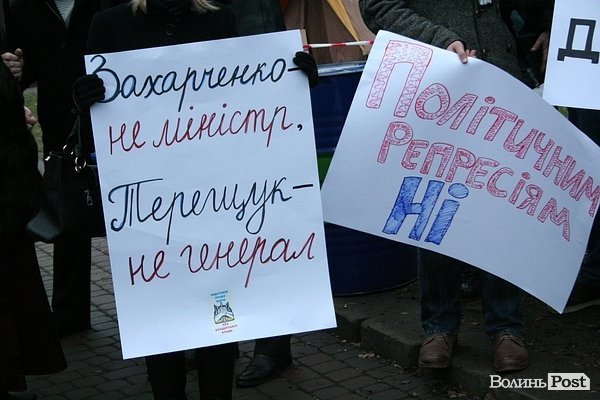 Захарченко-
не міністр,
Терещук-
не генерал
Політичним
репресіям
Ні
Д
Волинь Post